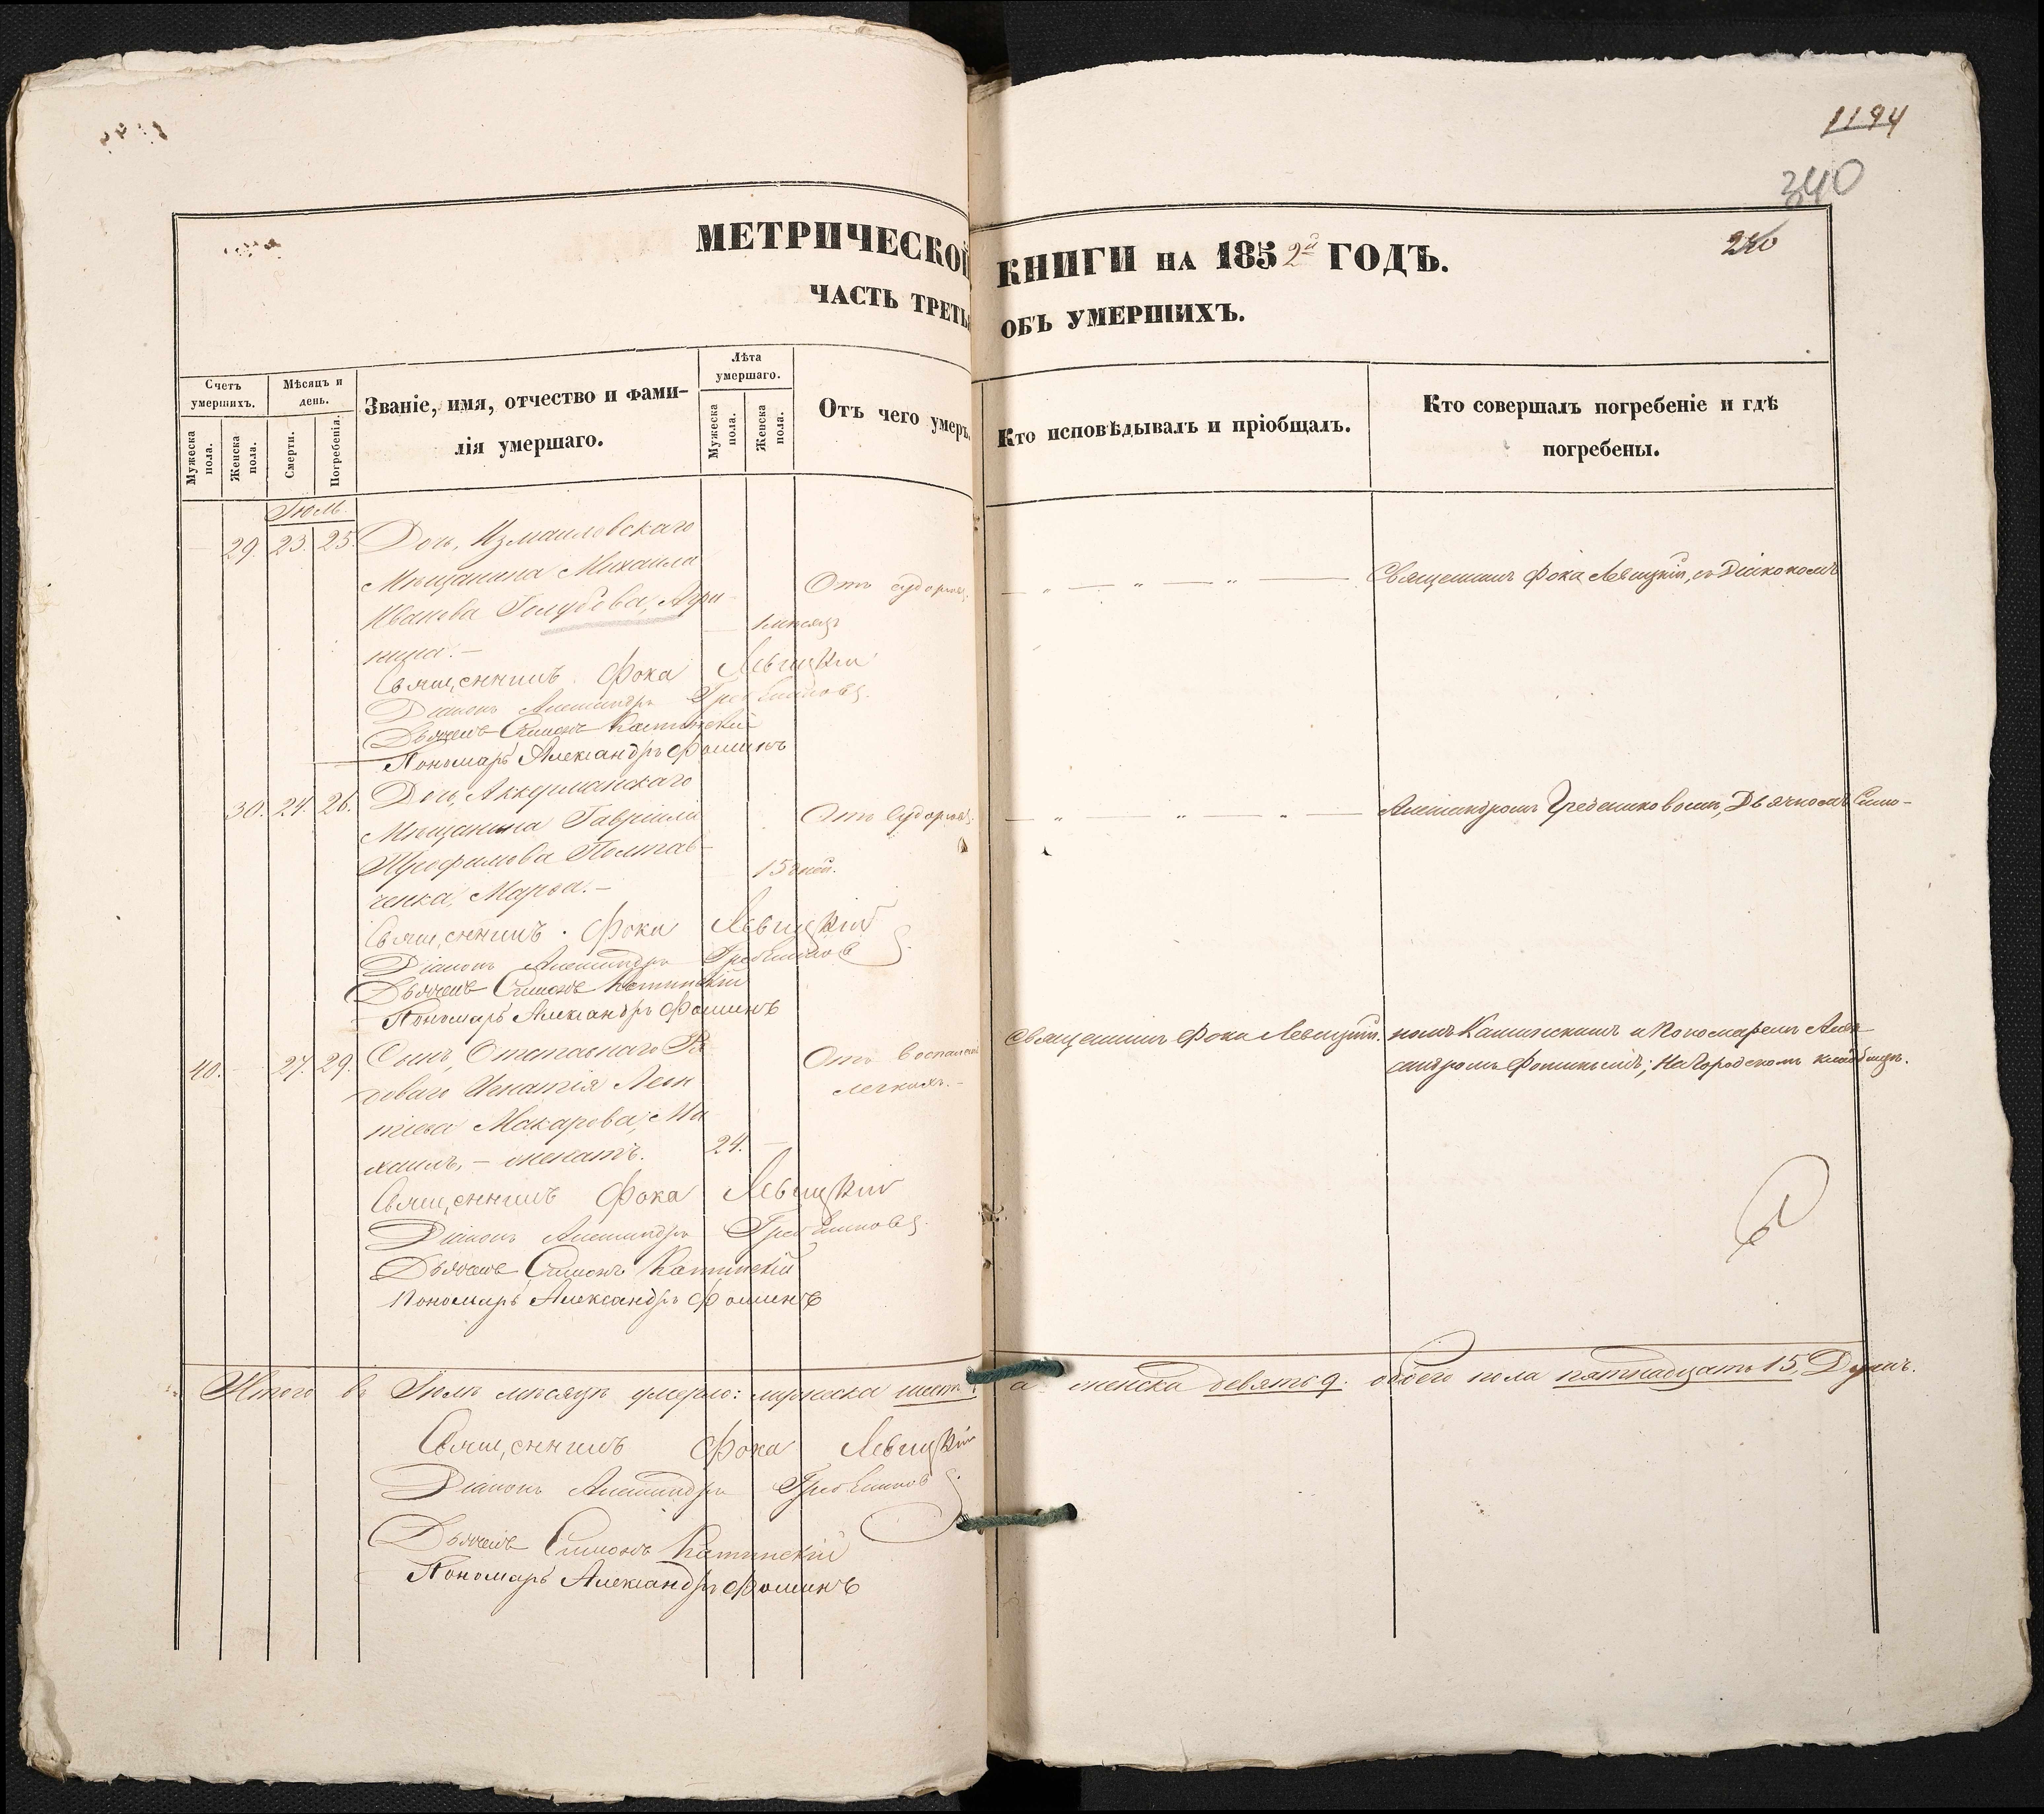 1194
340
240
МЕТРИЧЕСКОЙ КНИГИ НА 1852й ГОДЪ.
ЧАСТЬ ТРЕТЬ ОБЪ УМЕРШИХЪ.
Счетъ умершихъ.
Мѣсяцъ и день.
Званіе, имя, отчество и фами-
лія умершаго.
Лѣта умершаго.
Отъ чего умеръ.
Кто исповѣдывалъ и пріобщалъ.
Кто совершалъ погребеніе и гдѣ
погребены.
Мужеска пола.
Женска пола.
Смерти.
Погребенія.
Мужеска пола.
Женска пола.
Іюль
29. 23. 25. Дочь, Измаиловскаго
Мѣщанина Михаила
Иванова Голубова, Агри-
пина.-
1 мѣсяцъ
Отъ судорог.
Священникъ Фока Левицкій, съ Діакономъ
Священникъ Фока Левицкій
Діаконъ Александръ Гребенниковъ
Дьячекъ Симонъ Каминскій
Пономарь Александръ Фоминъ
30. 24. 26. Дочь, Аккерманскаго
Мѣщанина Гавріила
Трофимова Полтав-
ченка, Марѳа.-
15 дней.
Отъ судорог.
Александромъ Гребенниковымъ, Дьячкомъ Симо-
Священникъ Фока Левицкій
Діаконъ Александръ Гребенниковъ
Дьячекъ Симонъ Каминскій
Пономарь Александръ Фоминъ
40. 27. 29. Сынъ, Отставнаго Ря-
доваго Игнатія Леон
тіева Макарова, Ми
хаилъ, - женатъ.
24.
Отъ воспаленія
легкихъ.-
Священникъ Фока Левицкій.
номъ Каминскимъ и Пономаремъ Алек-
сандромъ Фоминымъ; На Городскомъ кладбищѣ.
Священникъ Фока Левицкій
Діаконъ Александръ Гребенниковъ
Дьячекъ Симонъ Каминскій
Пономарь Александръ Фоминъ
Итого въ Іюлѣ мѣсяцѣ умерло: мужеска шесть а женска девять 9. обоего пола пятнадцать 15, Душъ.
Священникъ Фока Левицкій
Діаконъ Александръ Гребенниковъ
Дьячекъ Симонъ Каминскій
Пономарь Александръ Фоминъ